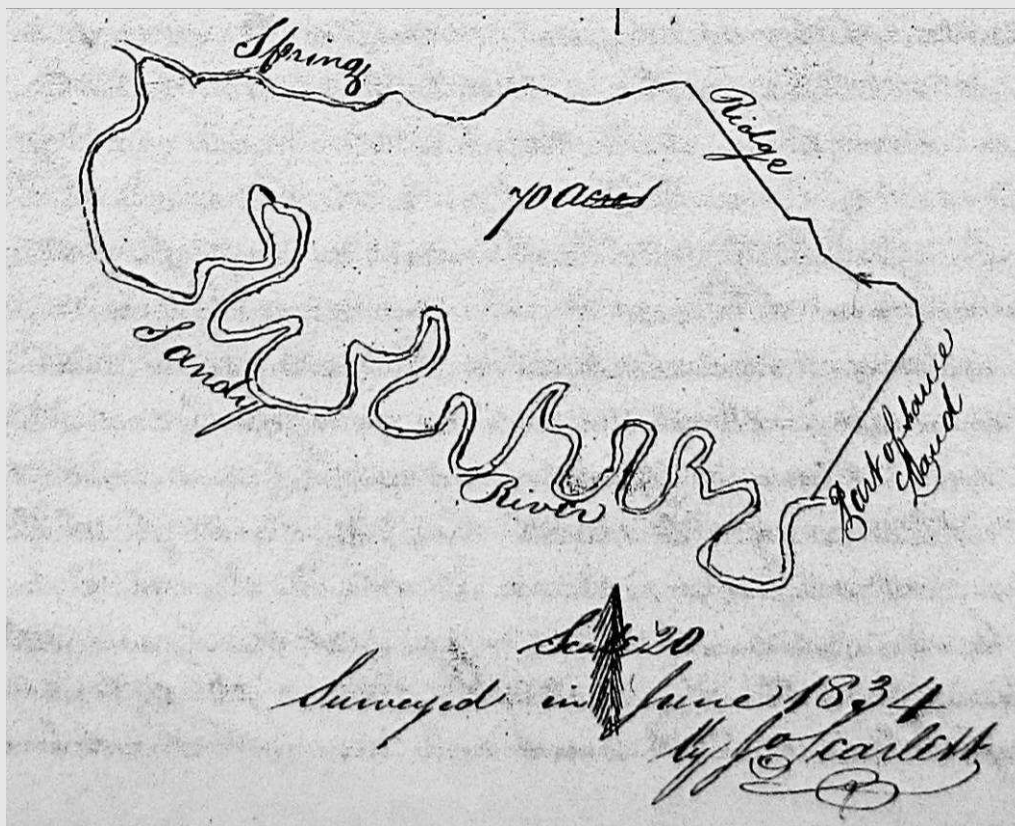 Spring
Ridge
70 Acres
Sandy
River
Part of same
Land
Scale 20
Surveyed in June 1834
by Jo Scarlett